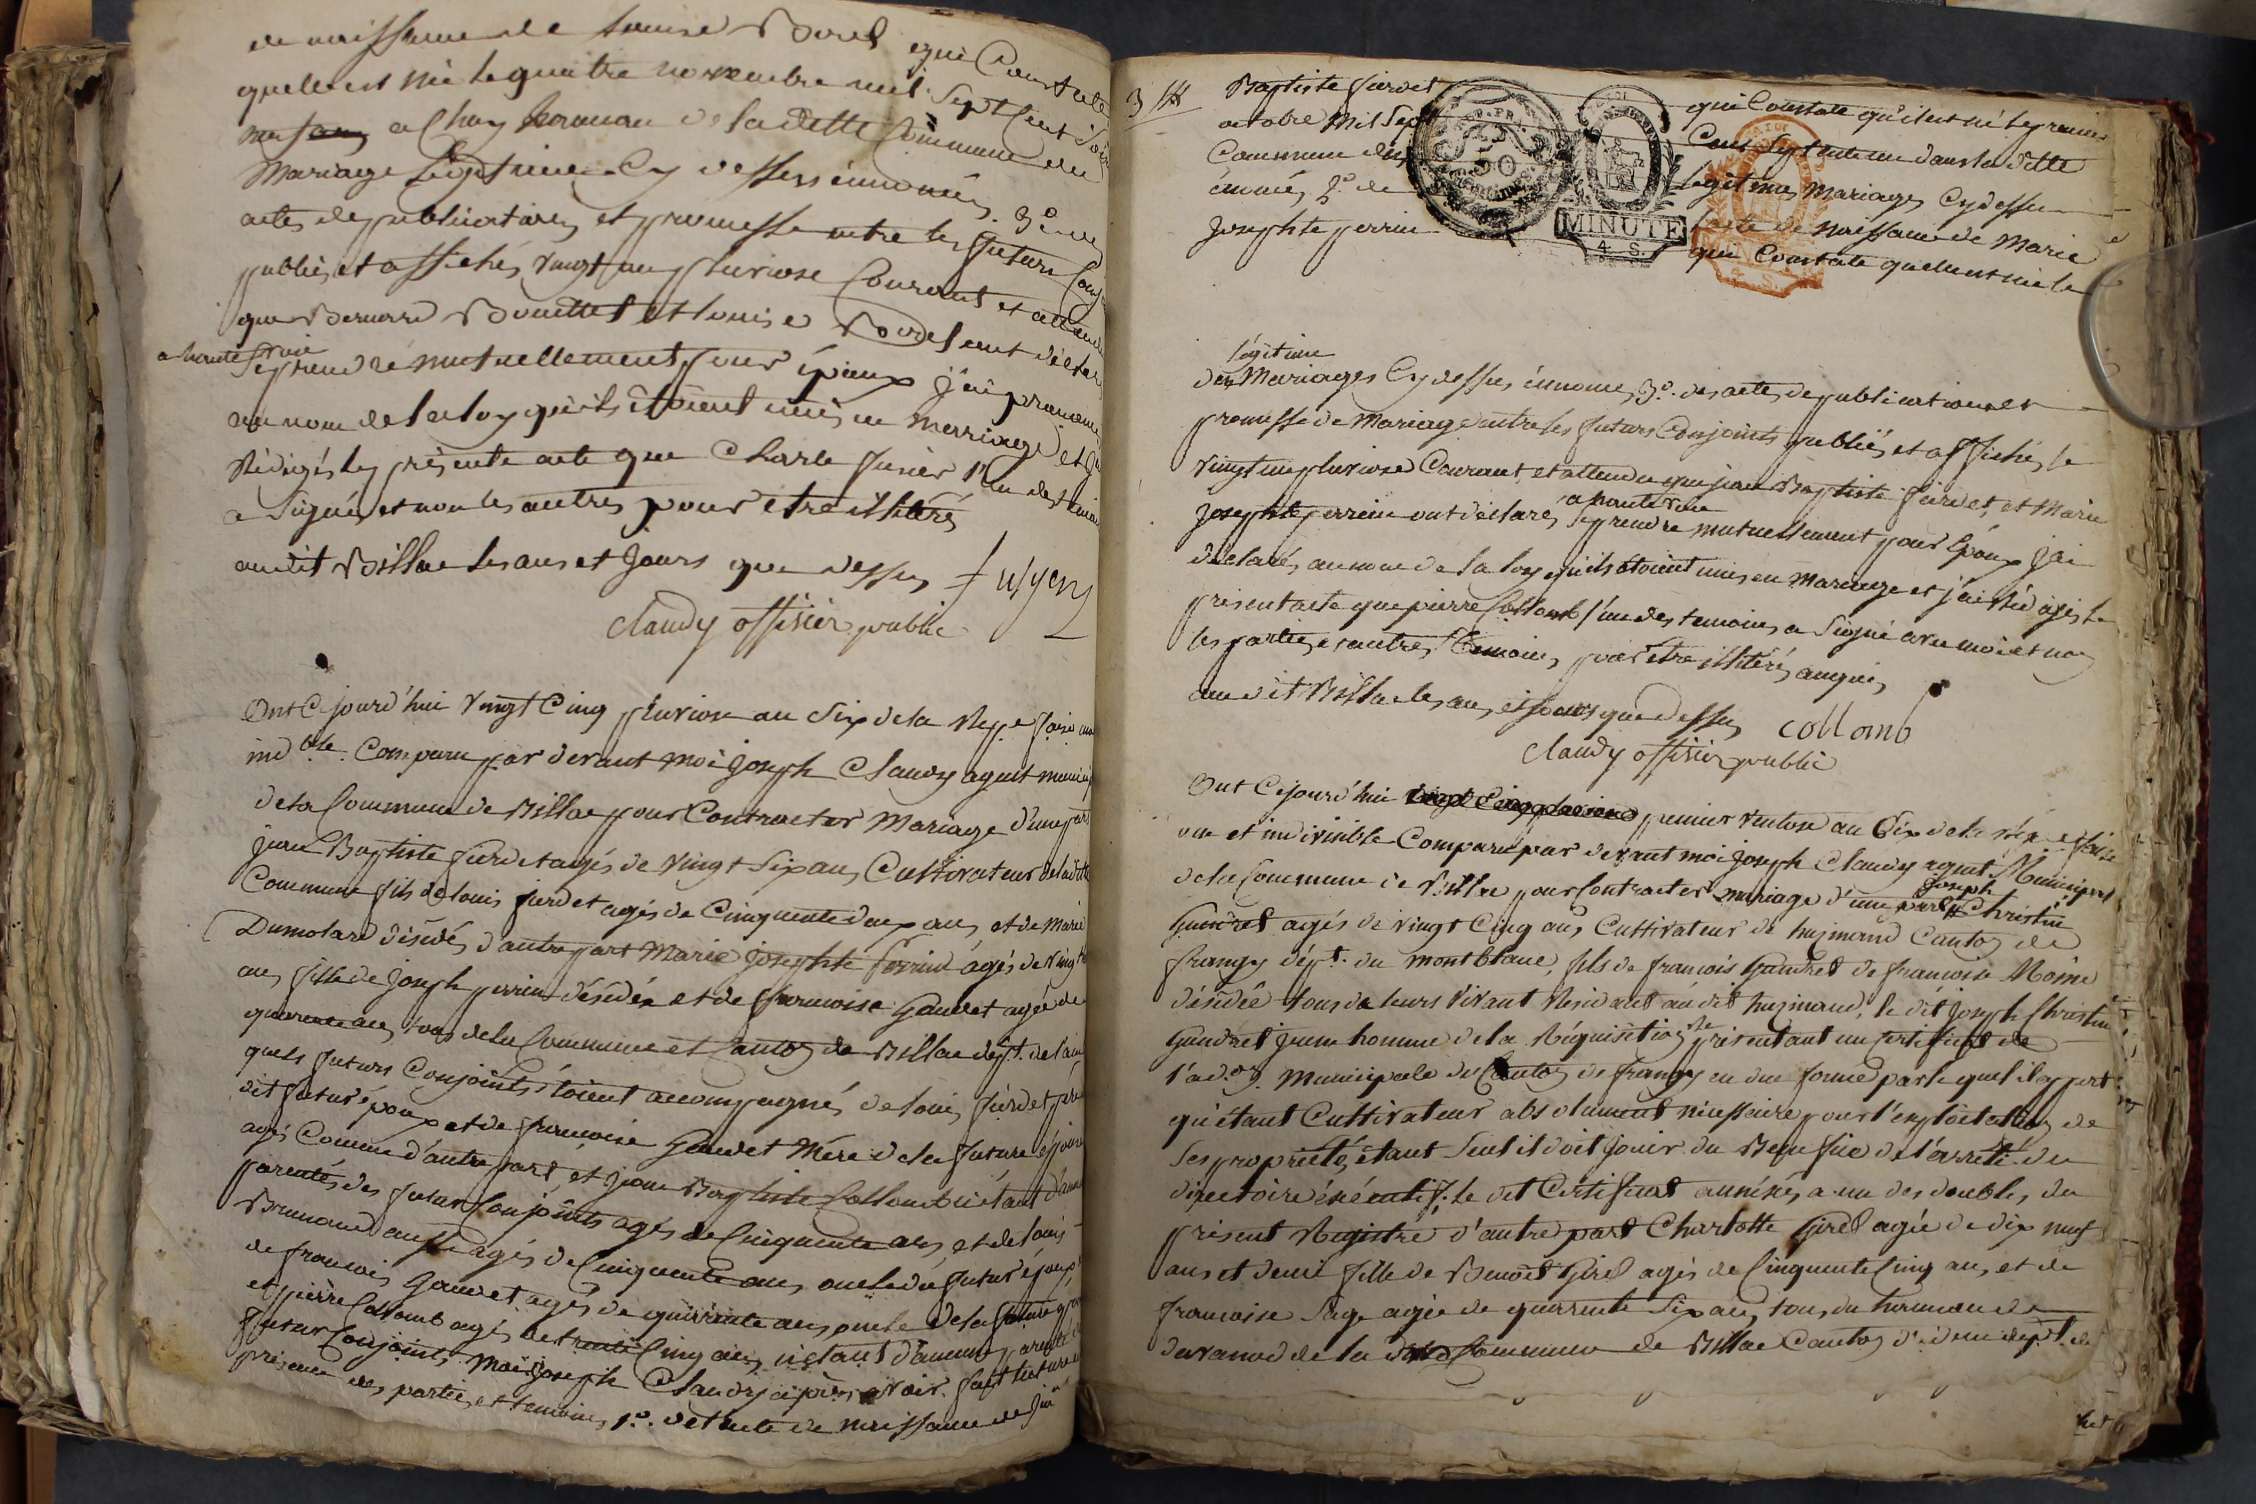 de naissance de Louise Borel qui Constate
quelle est née le quatre novembre mil Sept Cent Soix
a Chay hormeau de la ditte Commune du
Mariage Légitime Cy dessus énnomés. 3º. des
actes de publications et promesse entre les futurs Conj
publiés et affichés vingt un pluviose Courant et attendu
que Bernard Bouillet et Louise Borel ont déclarés
a haute voix
Se prendre mutuellement pour époux j'ai prononcé
au nom de la loy qu'ils étoient unis en Marriage et j'ai
Rédigés le présente acte que Charle fusier l'un des témoins
a Signés et non les autres pour etre illitérés
audit Billiae les ans et jours que dessus
Claudy offisier public
Ont Cejourd'hui vingt Cinq pluviose an Six de la Repe. frsse. une
indble. Comparu par devant moi joseph Claudy agent municip
de la Commune de Billae pour Contracter Mariage d'une part
jean Baptiste fierdet agés de vingt Six ans Cultivateur de la ditte
Commune fils de louis fierdet agés de Cinquente deux ans et de Marie
Dumolard désédés d'autre part Marie josephte perrin agés de vingt
ans fille de joseph perrin désédée et de francoise Gaudet agée de
quarente ans tous de la Commune et Canton de Billae dépt. de l'ain
quels futurs Conjoints étoient accompagnés de louis fierdet père
dit futur époux et de francoise Gaudet Mère de la future épouse
agés Comme d'autre part et jean Baptiste Collomb n'étant d'aucune
parentés des futurs Conjoints agés de Cinquente ans et de louis
Brunand aussi agés de Cinquente ans oncle du futur époux
de francois Gaudet agés de quarente ans oncle de la future épouse
et pierre Collomb agés de trente Cinq ans n'étant d'aucune parenté
futur Conjoints. Moi joseph Claudy après avoir fait lecture en
présence des parties et temoins 1º. de l'acte de naissance de jean
3
Baptiste fierdet qui Constate qu'il est né le premier
octobre Mil Sept Cent Septente un dans la ditte
Commune des légitimes Mariages Cy dessus
énnomés 2º. de l'acte de Naissance de Marie
Josephte perrin qui Constate quelle est née le
RÉP. FR.
50
MINUTE
4. S.
légitime
des Mariages Cy dessus énnomés 3º. des actes de publications et
promesse de Mariage entre les futurs Conjoints publiés et affichés le
vingt un pluviose Courant, et attendu que jean Baptiste fierdet et Marie
a haute voix
Josephte perrin ont déclarés Se prendre mutuellement pour Epoux j'ai
déclarés au nom de la loy qu'ils étoient unis en Mariage et j'ai Rédigés le
présent acte que pierre Collomb l'un des temoins a Signé avec moi et non
les parties et autres temoins pour etre illitérés
audit Billae les ans et jours que dessus Collomb
Claudy offisier public
Ont Cejourd'hui vingt Cinq pluviose premier ventose an Six de la rép.e fçaise
une et indivisible Comparu par devant moi joseph Claudy agent Municipal
de la Commune de Billae pour Contracter mariage d'une part Joseph Christin
Gandret agés de vingt Cinq ans Cultivateur de huimand Canton de
frangy dépt. du montblanc, fils de francois Gandret de francoise Moine
désédée tous de leurs vivant Residant audit huimand, le dit joseph Christin
Gandret jeune homme de la Réquisition présentant un certificat de
l'ad.on Municipale du Canton de frangy en due forme par le quel il appert
qu'étant Cultivateur absolument nécessaire pour l'exploitation de
Ses propriétés étant Seul il doit jouir du Benefice de l'arreté du
directoire exécutif, le dit Certificat annéxés a un des doubles du
présent Registre d'autre part Charlotte Girel agée de dix neuf
ans et demi fille de Benoit Girel agés de Cinquente Cinq ans et de
francoise Sage agée de quarente Six ans tous du hameau de
davanod de la Commune de Billae Canton d'idem dépt. de